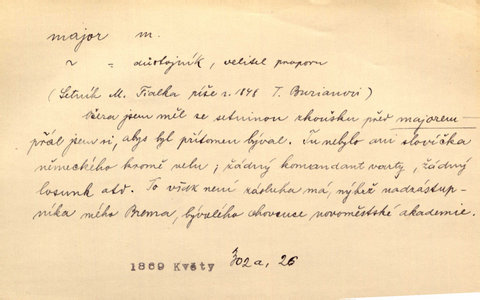 major m.
~ = důstojník, velitel praporu
(Setník M. Fialka píše r. 1848 T. Burianovi)
Včera jsem měl se setninou zkoušku před majorem
přál jsem si, abys byl přítomen býval. Tu nebylo ani slovíčka
německého kromě velu; žádný komandant varty, žádný
losunk atd. To však není zásluha má, nýbrž nadzástup-
níka mého Brema, bývalého chovance novoměstské akademie.
1869 Květy 302a, 26